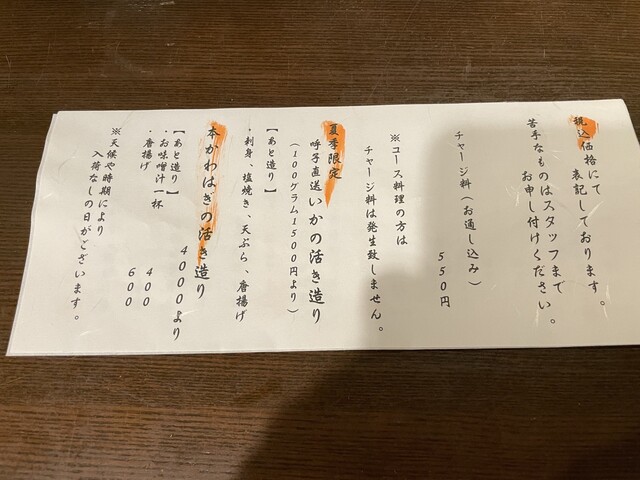 税込価格にて
表記しております。
苦手なものはスタッフまで
お申し付けください。
チャージ料(お通し込み)
550円
※コース料理の方は
チャージ料は発生致しません。
夏季限定
呼子直送いかの活き造り
(100グラム1500円より)
【あと造り】
・刺身、塩焼き、天ぷら、唐揚げ
本かわはぎの活き造り
4000より
【あと造り】
・お味噌汁一杯 400
・唐揚げ 600
※天候や時期により
入荷なしの日がございます。